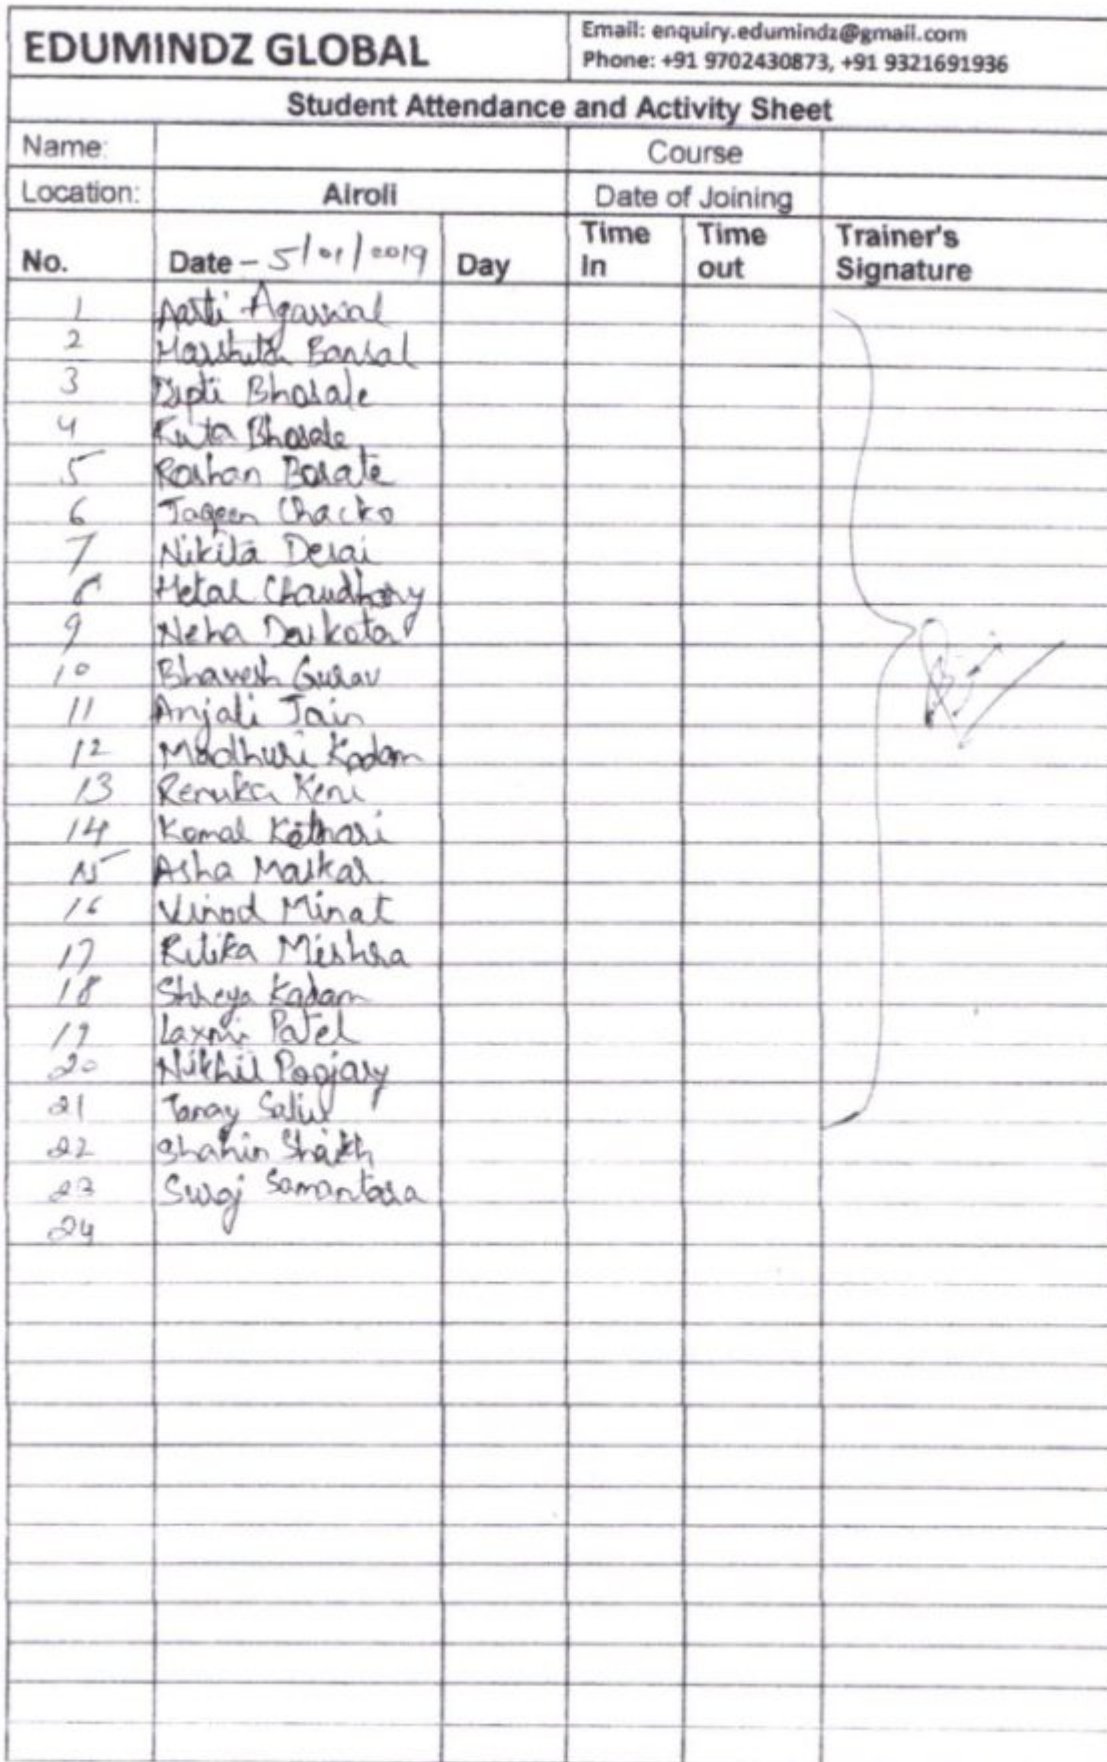 EDUMINDZ GLOBAL
Email: enquiry.edumindz@gmail.com
Phone: +91 9702430873, +91 9321691936
Student Attendance and Activity Sheet
Name: Course
Location: Airoli Date of Joining
No. Date – 5/01/2019 Day Time In Time out Trainer's Signature
1 Aarti Agarwal
2 Harshita Bansal
3 Dipti Bhosale
4 Bhosale
5 Roshan Borate
6 Chacko
7 Nikita Desai
8 Hetal Chaudhary
9 Neha Devkota
10 Bhavesh Gurav
11 Anjali Jain
12 Madhuri Kadam
13 Renuka Keni
14 Komal Kothari
15 Asha Maskar
16 Vinod Minat
17 Ritika Mishra
18 Shreya Kadam
19 Laxmi Patel
20 Nikhil Poojary
21 Tanay
22 Shahin Shaikh
23 Suraj Samantara
24